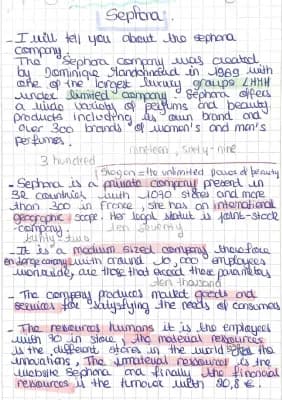 Sephora.
- I will tell you about the sephora
company.
The Sephora company was created
by Dominique Mandonnaud in 1969 with
one of the largest luxury groups LVHH
under limited company. Sephora offers
a wide variety of perfums and beauty
products including is own brand and
over 300 brands of women's and man's
perfumes.
nineteen, sixty-nine
3 hundred
Slogan = the unlimited power of beauty
- Sephora is a private company present in
32 countries with 1070 stores and more
than 300 in France, she has an international
geographic scope. Her legal statut is joint-stock
company.
ten seventy
thirty-two
- It is a medium sized company therefore
an large company with around 10,000 employees
worldwide, are those that exceed these parameters
ten thousand
- The company produces market goods and
services for satysfying the needs of consumers
- The resources humans it is the employees
with 90 in store, the material resources
is the different stores in the world the
innovations, The immaterial resources is the
website Sephora and finally the financial
resources is the turnover with 20,8 €.